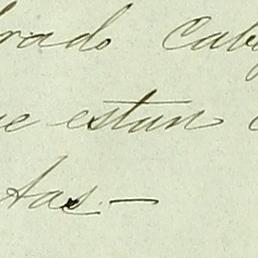 rado Cab
ue estan
tas.—